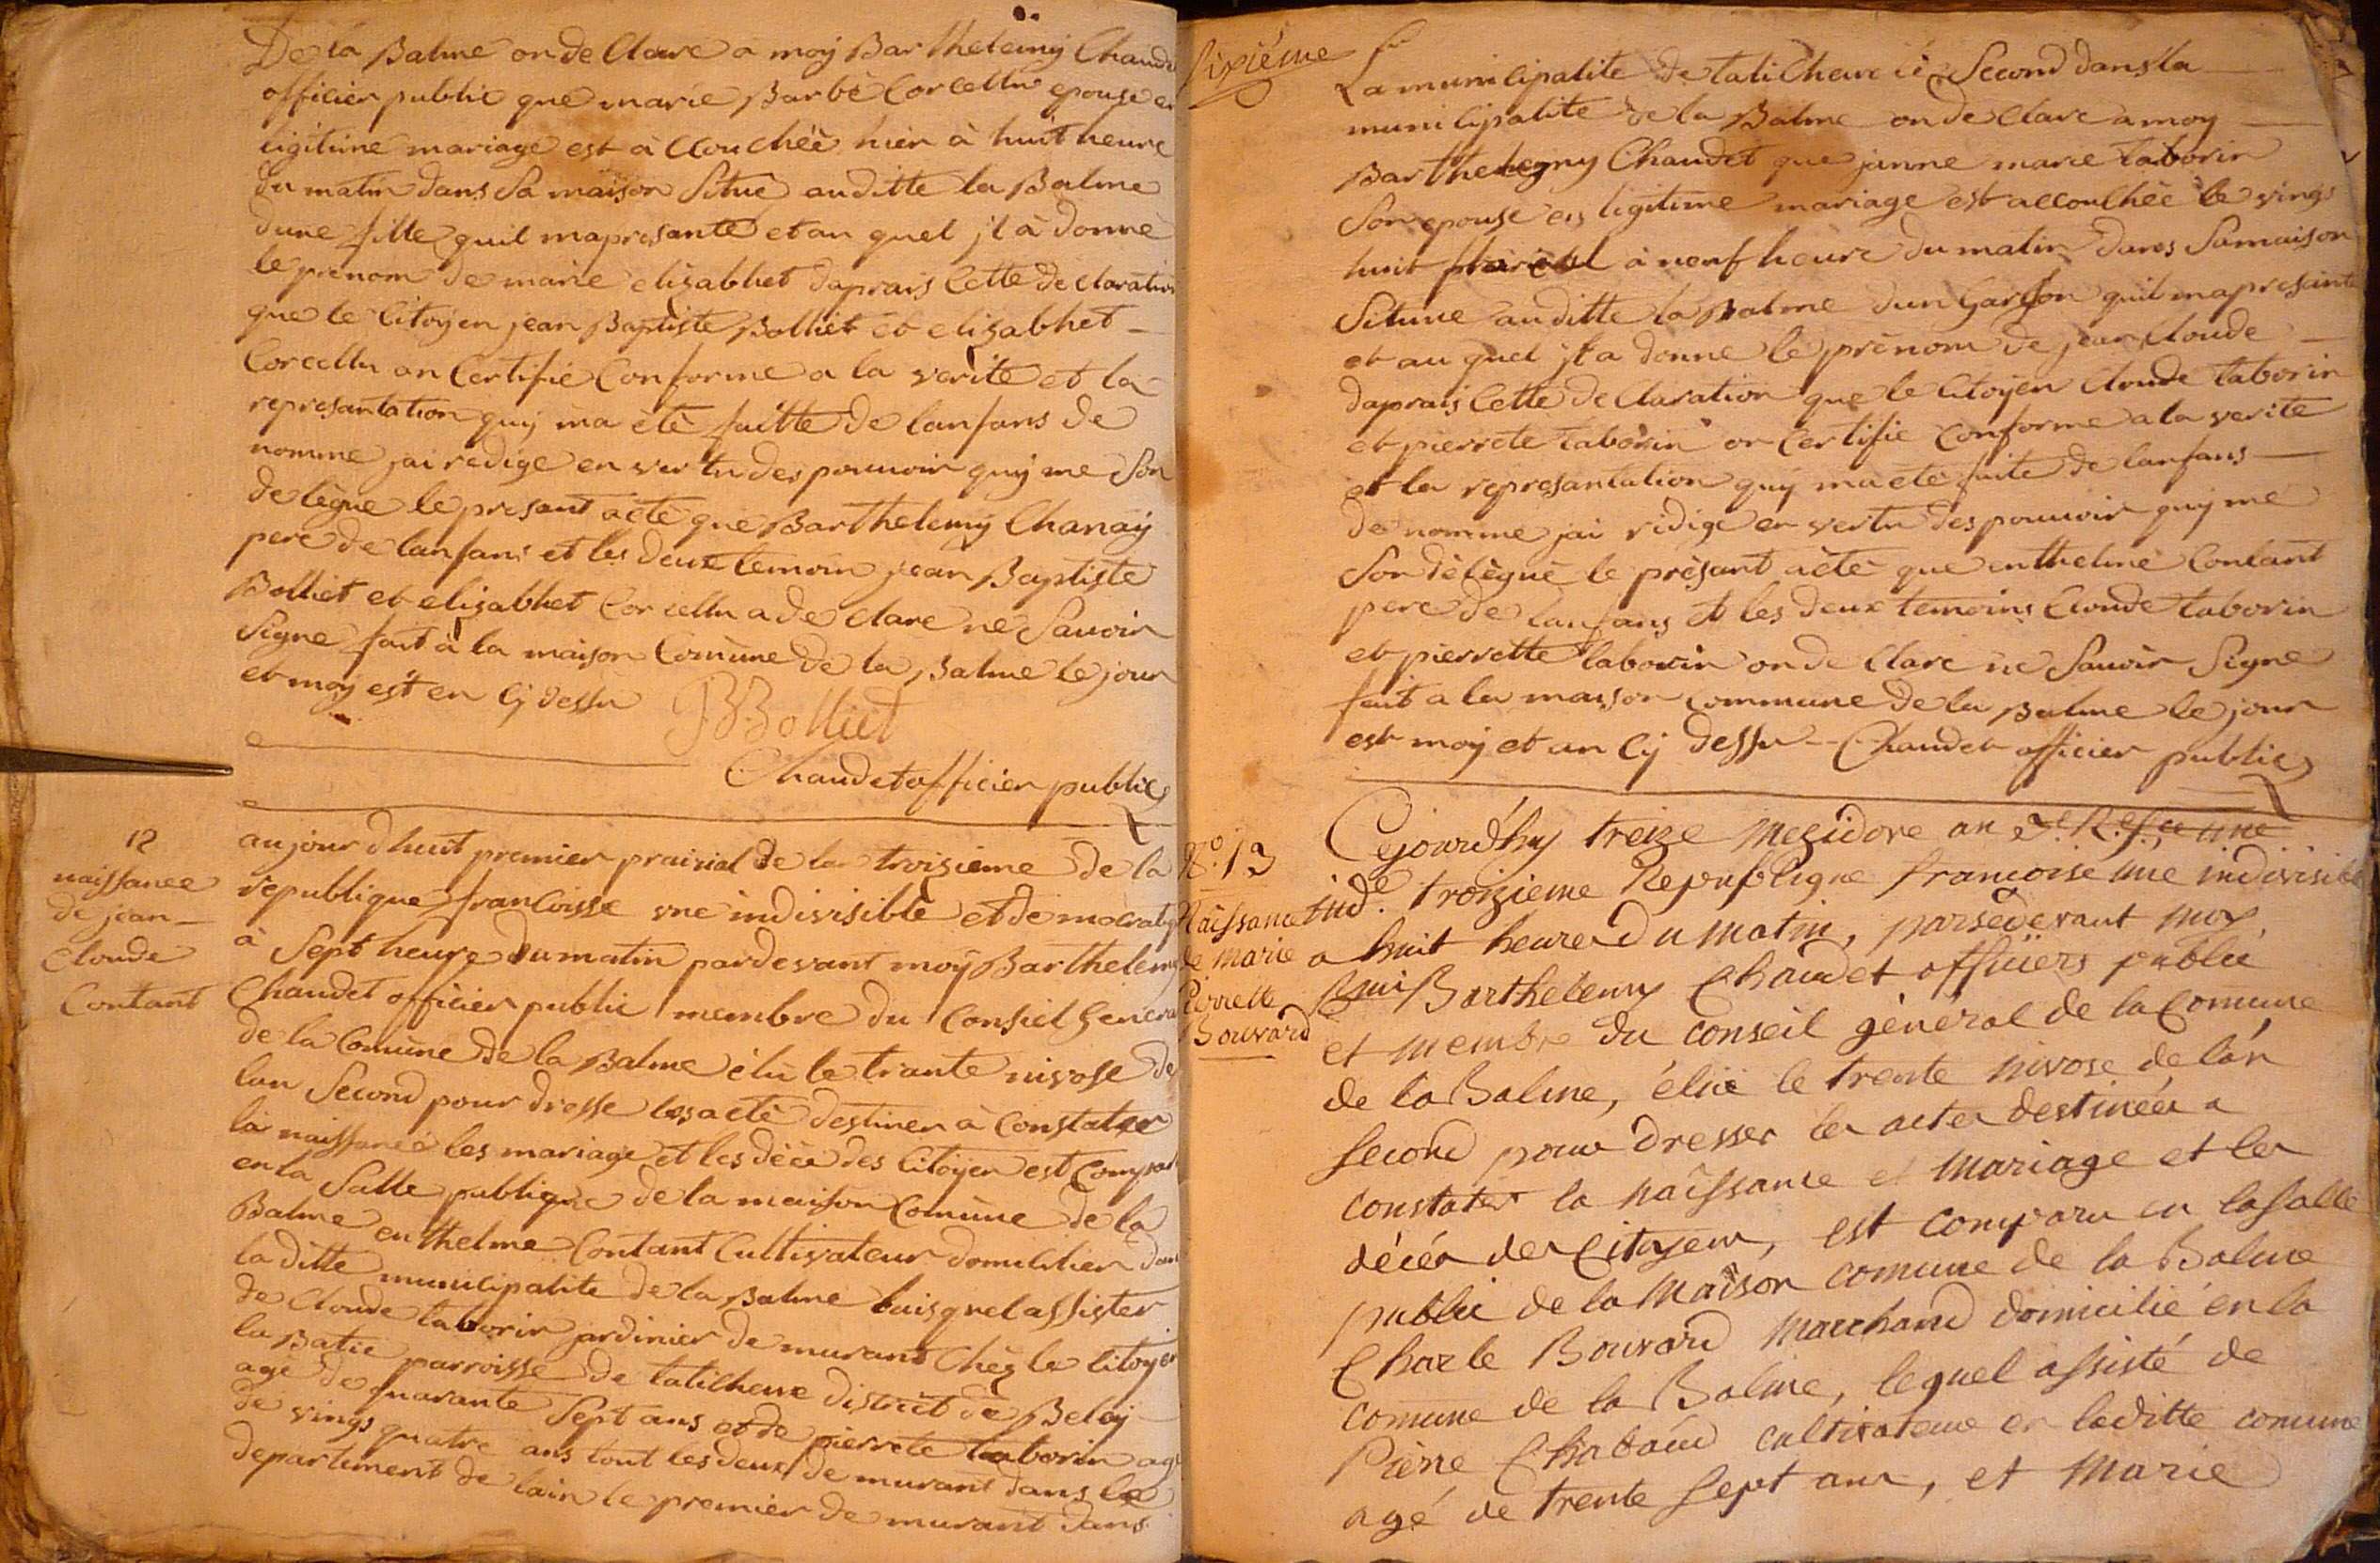 De la Balme on de Clare a moy Barthelemy Chaudet
officier public que marie Barbe Corcellu epouse en
ligitime mariage est à ccouchéè hier à huit heure
du matin dans Sa maison Situé auditte la Balme
dune fille quil mapresante et au quel jl à donnè
le prenom de marie elizabhet daprais Cette de claration
que le Citoyen jean Baptiste Bolliet et elizabhet
Corcellu an Certifié Conforme a la verite et la
represantation quy ma étè faitte de lanfans de
nomme jai redige en vertu des pouvoir quy me Son
delègue le presant acte que Barthelemy Chanay
pere de lanfans et les deux temoin jean Baptiste
Bolliet et elizabhet Corcellu a de Clare ne Savoir
Signe fait à la maison Comùne de la Balme le jour
et moy est en Cy dessu JBBolliet
Chaudet officier public
12
naissance
de jean
Cloude
Contant
aujourdhuit premier prairial de la troizieme de la
republique francoisse vne indivisible et de mocratiq
à Sept heure du matin pardevant moy Barthelemy
Chaudet officier public membre du Consiel General
de la Comùne de la Balme élù le trante nivose de
lan Second pour dresse les actè destiner à Constater
la naissance les mariage et les décè des Citoyen est Compar
en la Salle publique de la maison Comùne de la
Balme enthelme Contant Cultivateur domicilier dans
la ditte municipalite de la Balme laisquel assister
de Cloude taborin jardinier de murant Chèz le Citoyen
la Batie parroisse de talicheux district de Beley
agè de quarante Sept ans et de pierrete taborin agè
de vings quatre ans tout les deux de murant dans le
departement de lain le premier de murant dans
Sixiéme
La municipalite de talicheux lé Second dans la
municipalite de la Balme on de Clare a moy
Barthelemy Chaudet que janne marie taborin
Son epouse en ligitime mariage est accouchéè le vings
huit floréal à neuf heure du matin dans Sa maison
Situuè auditte la Balme dun Garson quil mapresante
et au quel jl a donne le prènom de jean Cloude
daprais Cette de Claration que le Citoyen Cloude taborin
et pierrete taborin on Certifie Conforme a la verite
et la represantation quy ma été faite de lanfans
de nomme jai rèdige en vertu des pouvoir quy me
Son dèlèguè le prèsant àctè que enthelme Contant
pere de lanfans et les deux temoins Cloude taborin
et pierrette taborin on de Clare ne Savoir Signe
fait a la maison Commune de la Balme le jour
est moy et an Cy dessu -- Chaudet officier public
N.º 13
Naissance
de marie
Pierrette
Bouvard
Cejourd'hy treize Mesidore an
ind.e troizieme Republique francoise une indivisible
a huit heures du matin, parsèdevant moy
Barthelemy Chaudet officiers public
et membre du conseil général de la Comune
de la Balme, élüe le trente nivose de l'an
second pour dresser les actes destinéés a
constater la naissance et mariage et les
décéés des Citoyens, est comparu en la Salle
public de la Maison comune de la Balme
Charle Bouvard Marchand domicilié en la
comune de la Balme, lequel assisté de
Pierre Chabaud cultivateur en laditte comune
agé de trente sept ans, et Marie